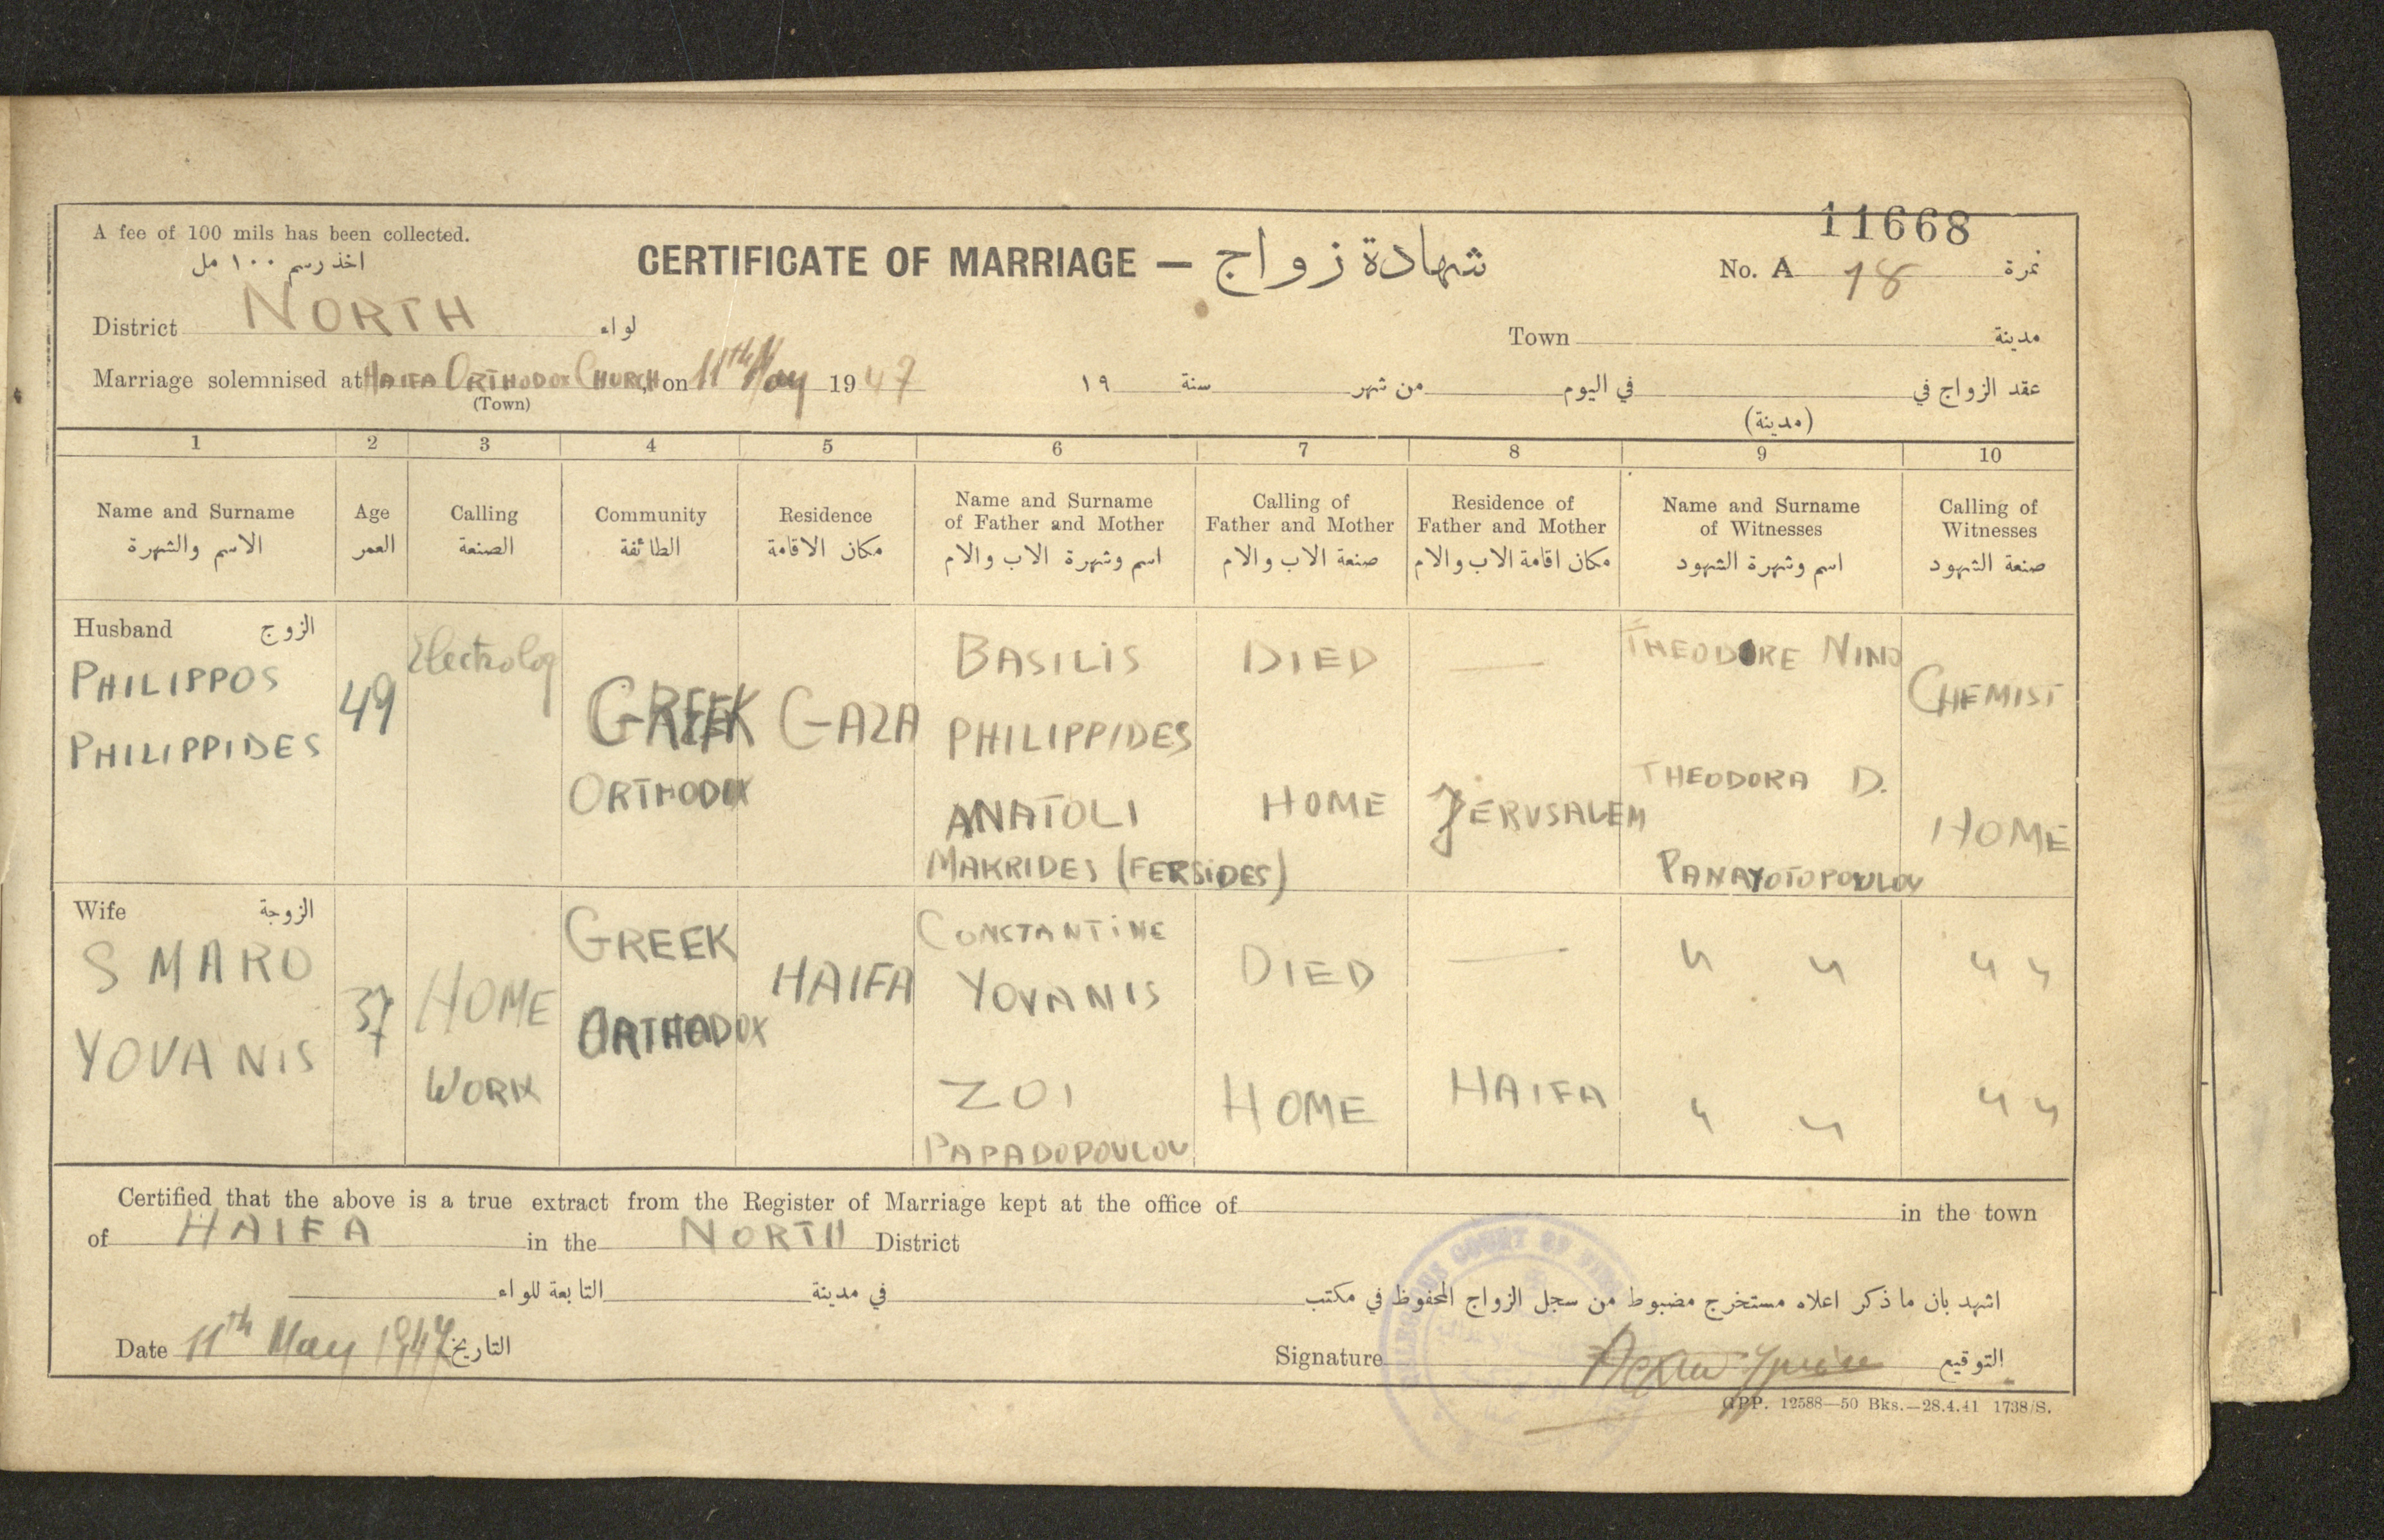 11668
A fee of 100 mils has been collected.
اخذ رسم ١٠٠ مل
CERTIFICATE OF MARRIAGE — شهادة زواج
No. A 18 نمرة
District NORTH لواء
Town مدينة
Marriage solemnised at HAIFA ORTHODOX CHURCH, on 11th May 1947
(Town)
عقد الزواج في في اليوم من شهر سنة ١٩
(مدينة)
1 2 3 4 5 6 7 8 9 10
Name and Surname
الاسم والشهرة
Age
العمر
Calling
الصنعة
Community
الطائفة
Residence
مكان الاقامة
Name and Surname
of Father and Mother
اسم وشهرة الاب والام
Calling of
Father and Mother
صنعة الاب والام
Residence of
Father and Mother
مكان اقامة الاب والام
Name and Surname
of Witnesses
اسم وشهرة الشهود
Calling of
Witnesses
صنعة الشهود
Husband الزوج
PHILIPPOS
PHILIPPIDES
49
Electrolog
GREEK
ORTHODOX
GAZA
BASILIS
PHILIPPIDES
ANATOLI
MAKRIDES (FERSIDES)
DIED
HOME
—
JERUSALEM
THEODORE NINO
THEODORA D.
PANAYOTOPOULOU
CHEMIST
HOME
Wife الزوجة
SMARO
YOVANIS
37
HOME
WORK
GREEK
ORTHODOX
HAIFA
CONSTANTINE
YOVANIS
ZOI
PAPADOPOULOU
DIED
HOME
—
HAIFA
" "
" "
" "
" "
Certified that the above is a true extract from the Register of Marriage kept at the office of in the town
of HAIFA in the NORTH District
اشهد بان ما ذكر اعلاه مستخرج مضبوط من سجل الزواج المحفوظ في مكتب في مدينة التابعة للواء
Date 11th May 1947 التاريخ
Signature التوقيع
GPP. 12588—50 Bks.—28.4.41 1738/S.